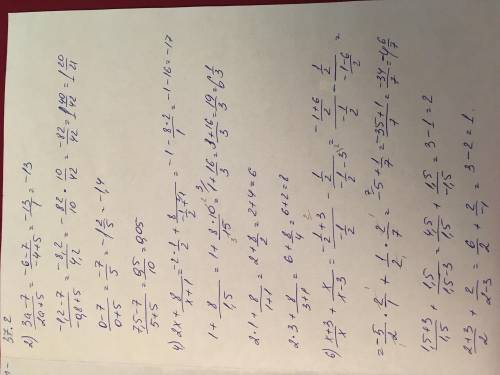 37.2
2) (3a-7)/(2a+5) = (-6-7)/(-4+5) = -13/1 = -13
(-1,2-7)/(-0,8+5) = -8,2/4,2 = -82/10 · 10/42 = -82/42 = 1 40/42 = 1 20/21
(0-7)/(0+5) = -7/5 = -1 2/5 = -1,4
(7,5-7)/(5+5) = 0,5/10 = 0,05
4) 2x + 8/(x+1) = 2·1/2 + 8/(-1/2+1) = -1 - (8·2)/1 = -1-16 = -17
1 + 8/1,5 = 1 + (8·10)/15 = 1 + 16/3 = (3+16)/3 = 19/3 = 6 1/3
2·1 + 8/(1+1) = 2 + 8/2 = 2+4 = 6
2·3 + 8/(3+1) = 6 + 8/4 = 6+2 = 8
6) (x+3)/x + x/(x-3) =
= -5/2 · 2/1 + 1/2 · 2/7 = -5 + 1/7 = (-35+1)/7 = -34/7 = -4 6/7
(1,5+3)/1,5 + 1,5/(1,5-3) = 4,5/1,5 + 1,5/-1,5 = 3-1 = 2
(2+3)/2 + 2/(2-3) = 6/2 + 2/-1 = 3-2 = 1.